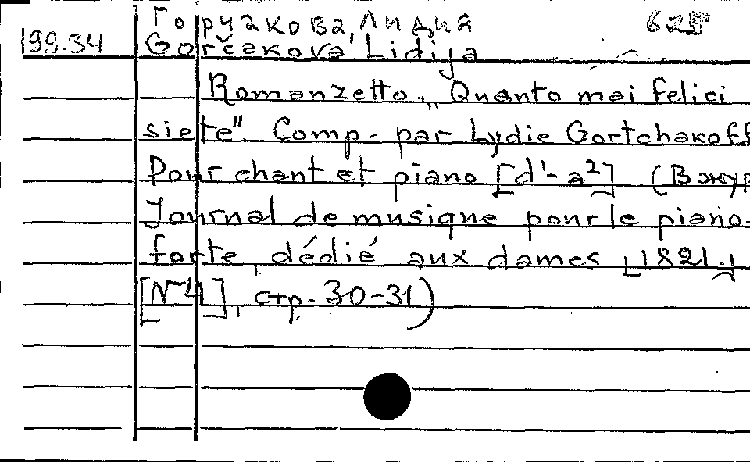 Горчакова, Лидия 625
199.34 Gorčakova Lidija
Romanzetto „Quanto mai felici
siete". Comp. par Lydie Gortchakoff
Pour chant et piano [d¹-a²] (В жур
Journal de musique pour le piano-
forte, dédié aux dames [1821.]
[N 4], стр. 30-31)